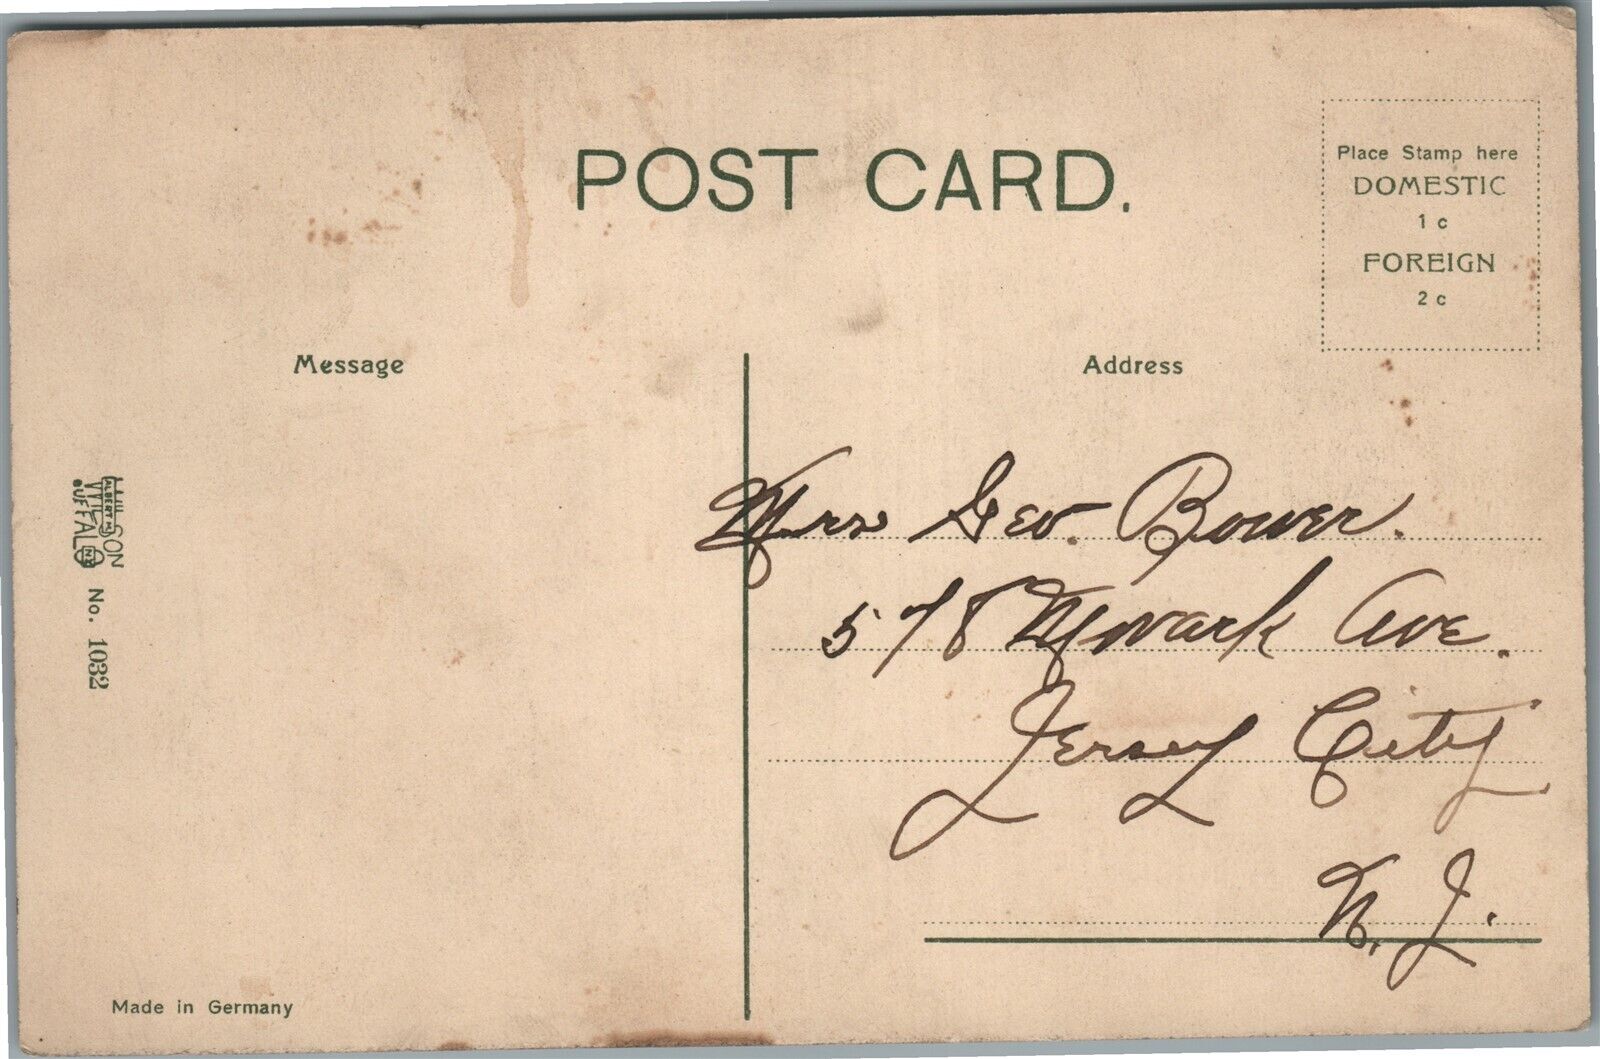 POST CARD.
Place Stamp here
DOMESTIC
1 c
FOREIGN
2 c
Message
Address
Mrs Geo. Bower.
578 Newark Ave.
Jersey City
N. J.
WILSON
ALBERT M.
BUFFALO
N.Y.
No. 1032
Made in Germany